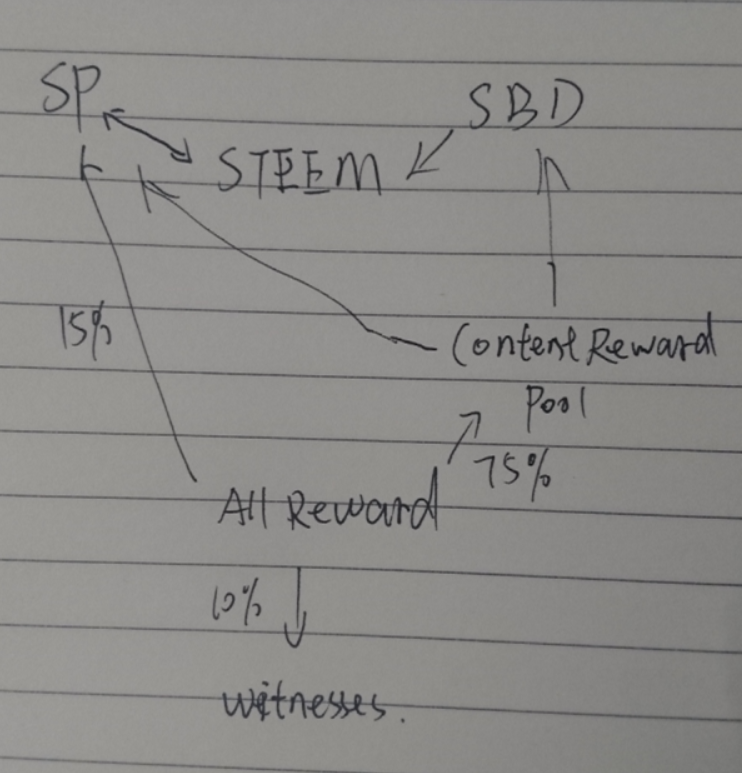 SP
SBD
STEEM
15%
Content Reward
Pool
75%
All Reward
10%
witnesses.